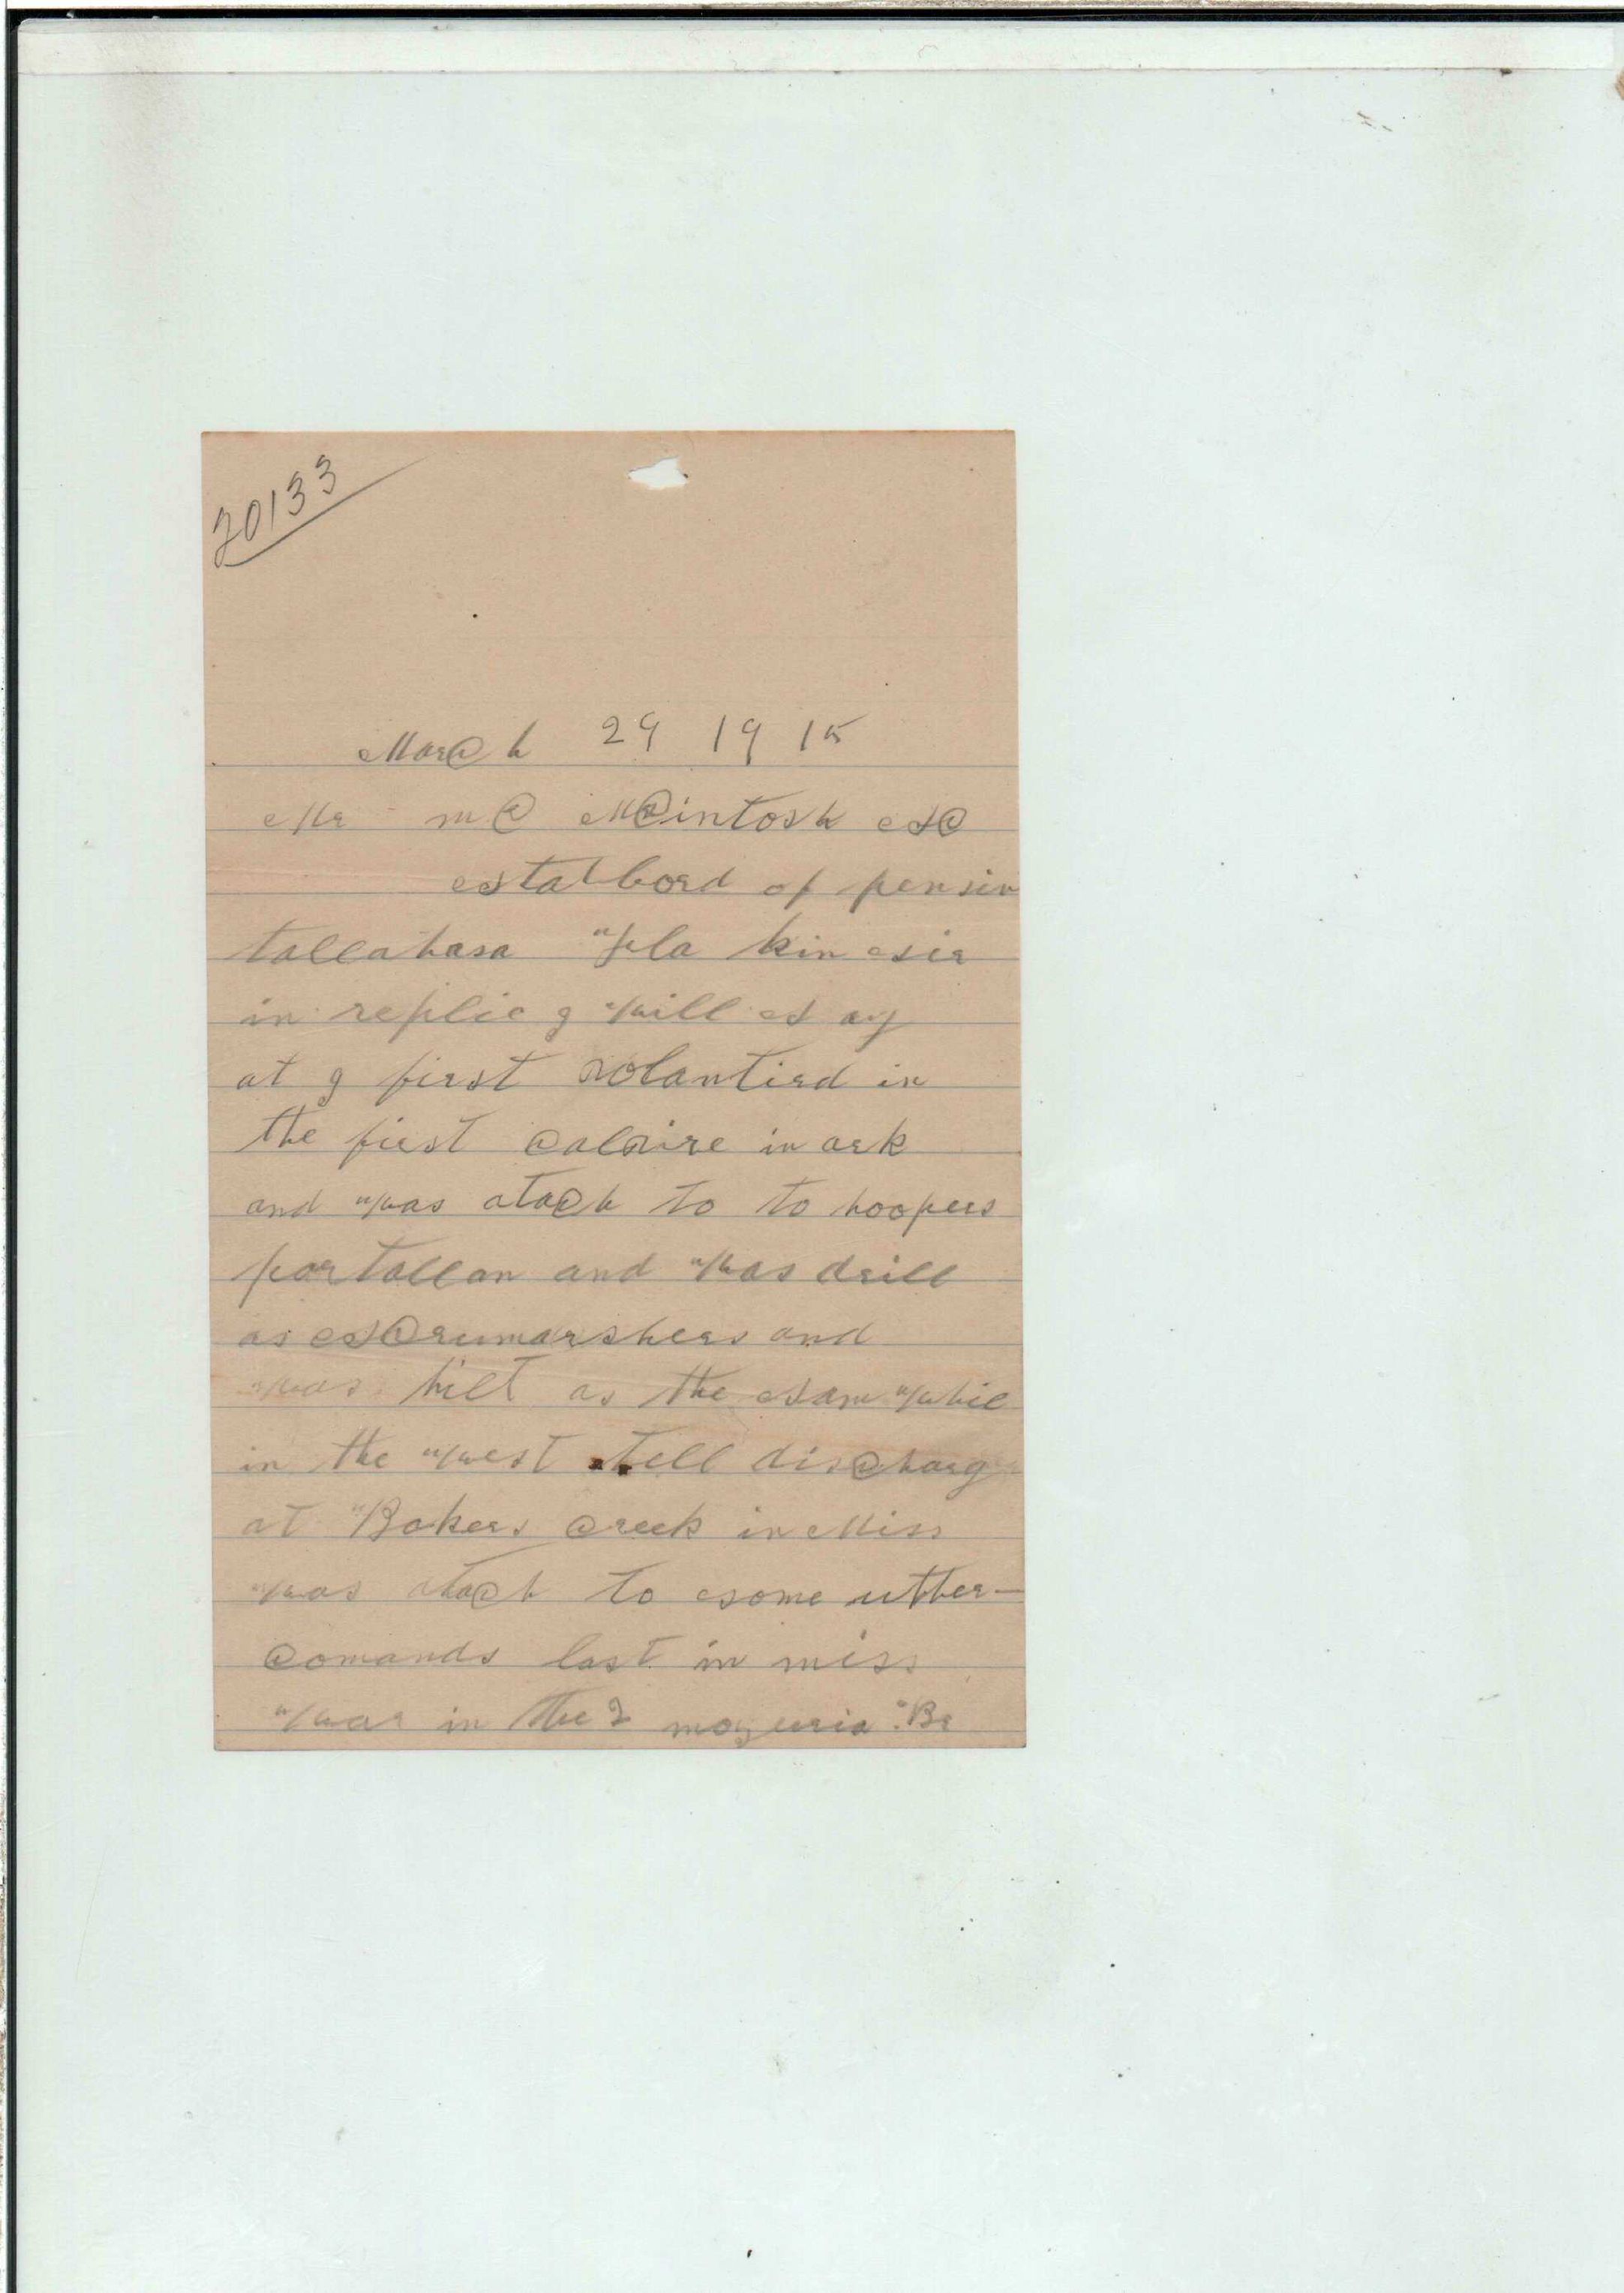 20133
March 29 1915
Mr mc Mcintosh Sc
Stat bord of pensin
tallahasa Fla kin Sir
in replie I Will Say
at I first volantird in
the first calvire in ark
and Was atach to to hoopers
partallan and Was drill
as Scrumarshers and
Was hilt as the Sam Whil
in the West tell discharg
at Bakers Creek in Miss
Was atach to Some utther
Comands last in miss
War in the 2 mozuria Br